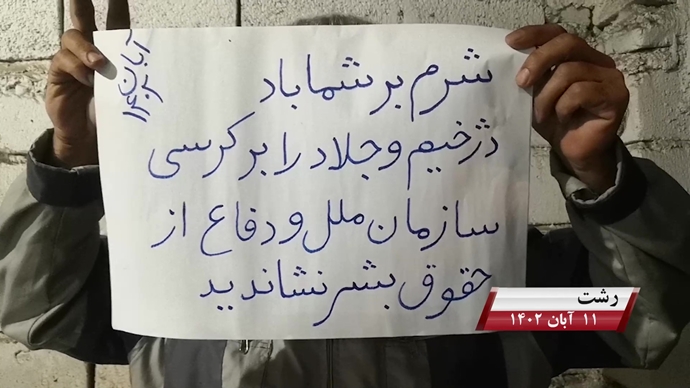 شرم بر شما باد
دژخیم و جلاد را بر کرسی
سازمان ملل و دفاع از
حقوق بشر نشاندید
آبان
۱۴۰۲
رشت
۱۱ آبان ۱۴۰۲